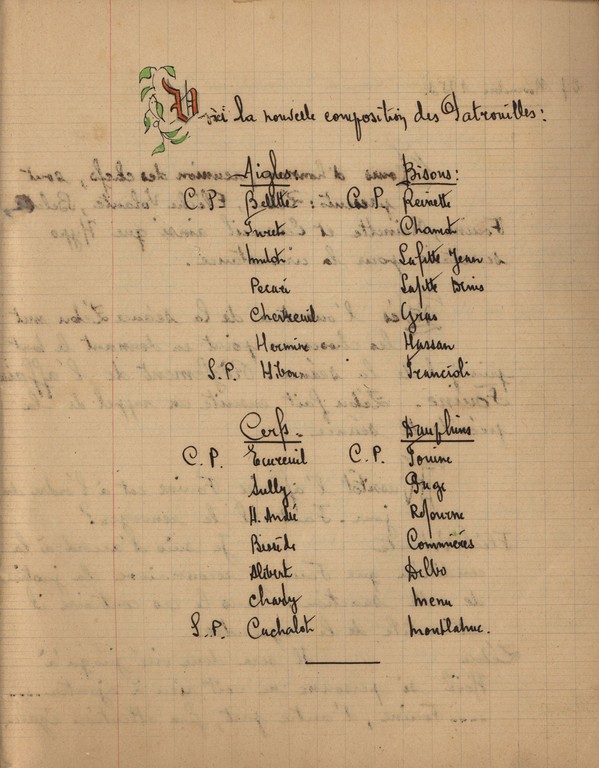 Voici la nouvelle composition des Patrouilles :
Aigles Bisons :
C.P. Belette C.P. Reinette
Furet Chamois
Mulot Lafitte Jean
Pecari Lafitte Denis
Chevreuil Gras
Hermine Hassan
S.P. Hibou Francioli
Cerfs. Dauphins
C.P. Ecureuil C.P. Fouine
Sully Buge
H. André
Commières
Alibert Delbo
Charly Menu
S.P. Cachalot Montlahuc.